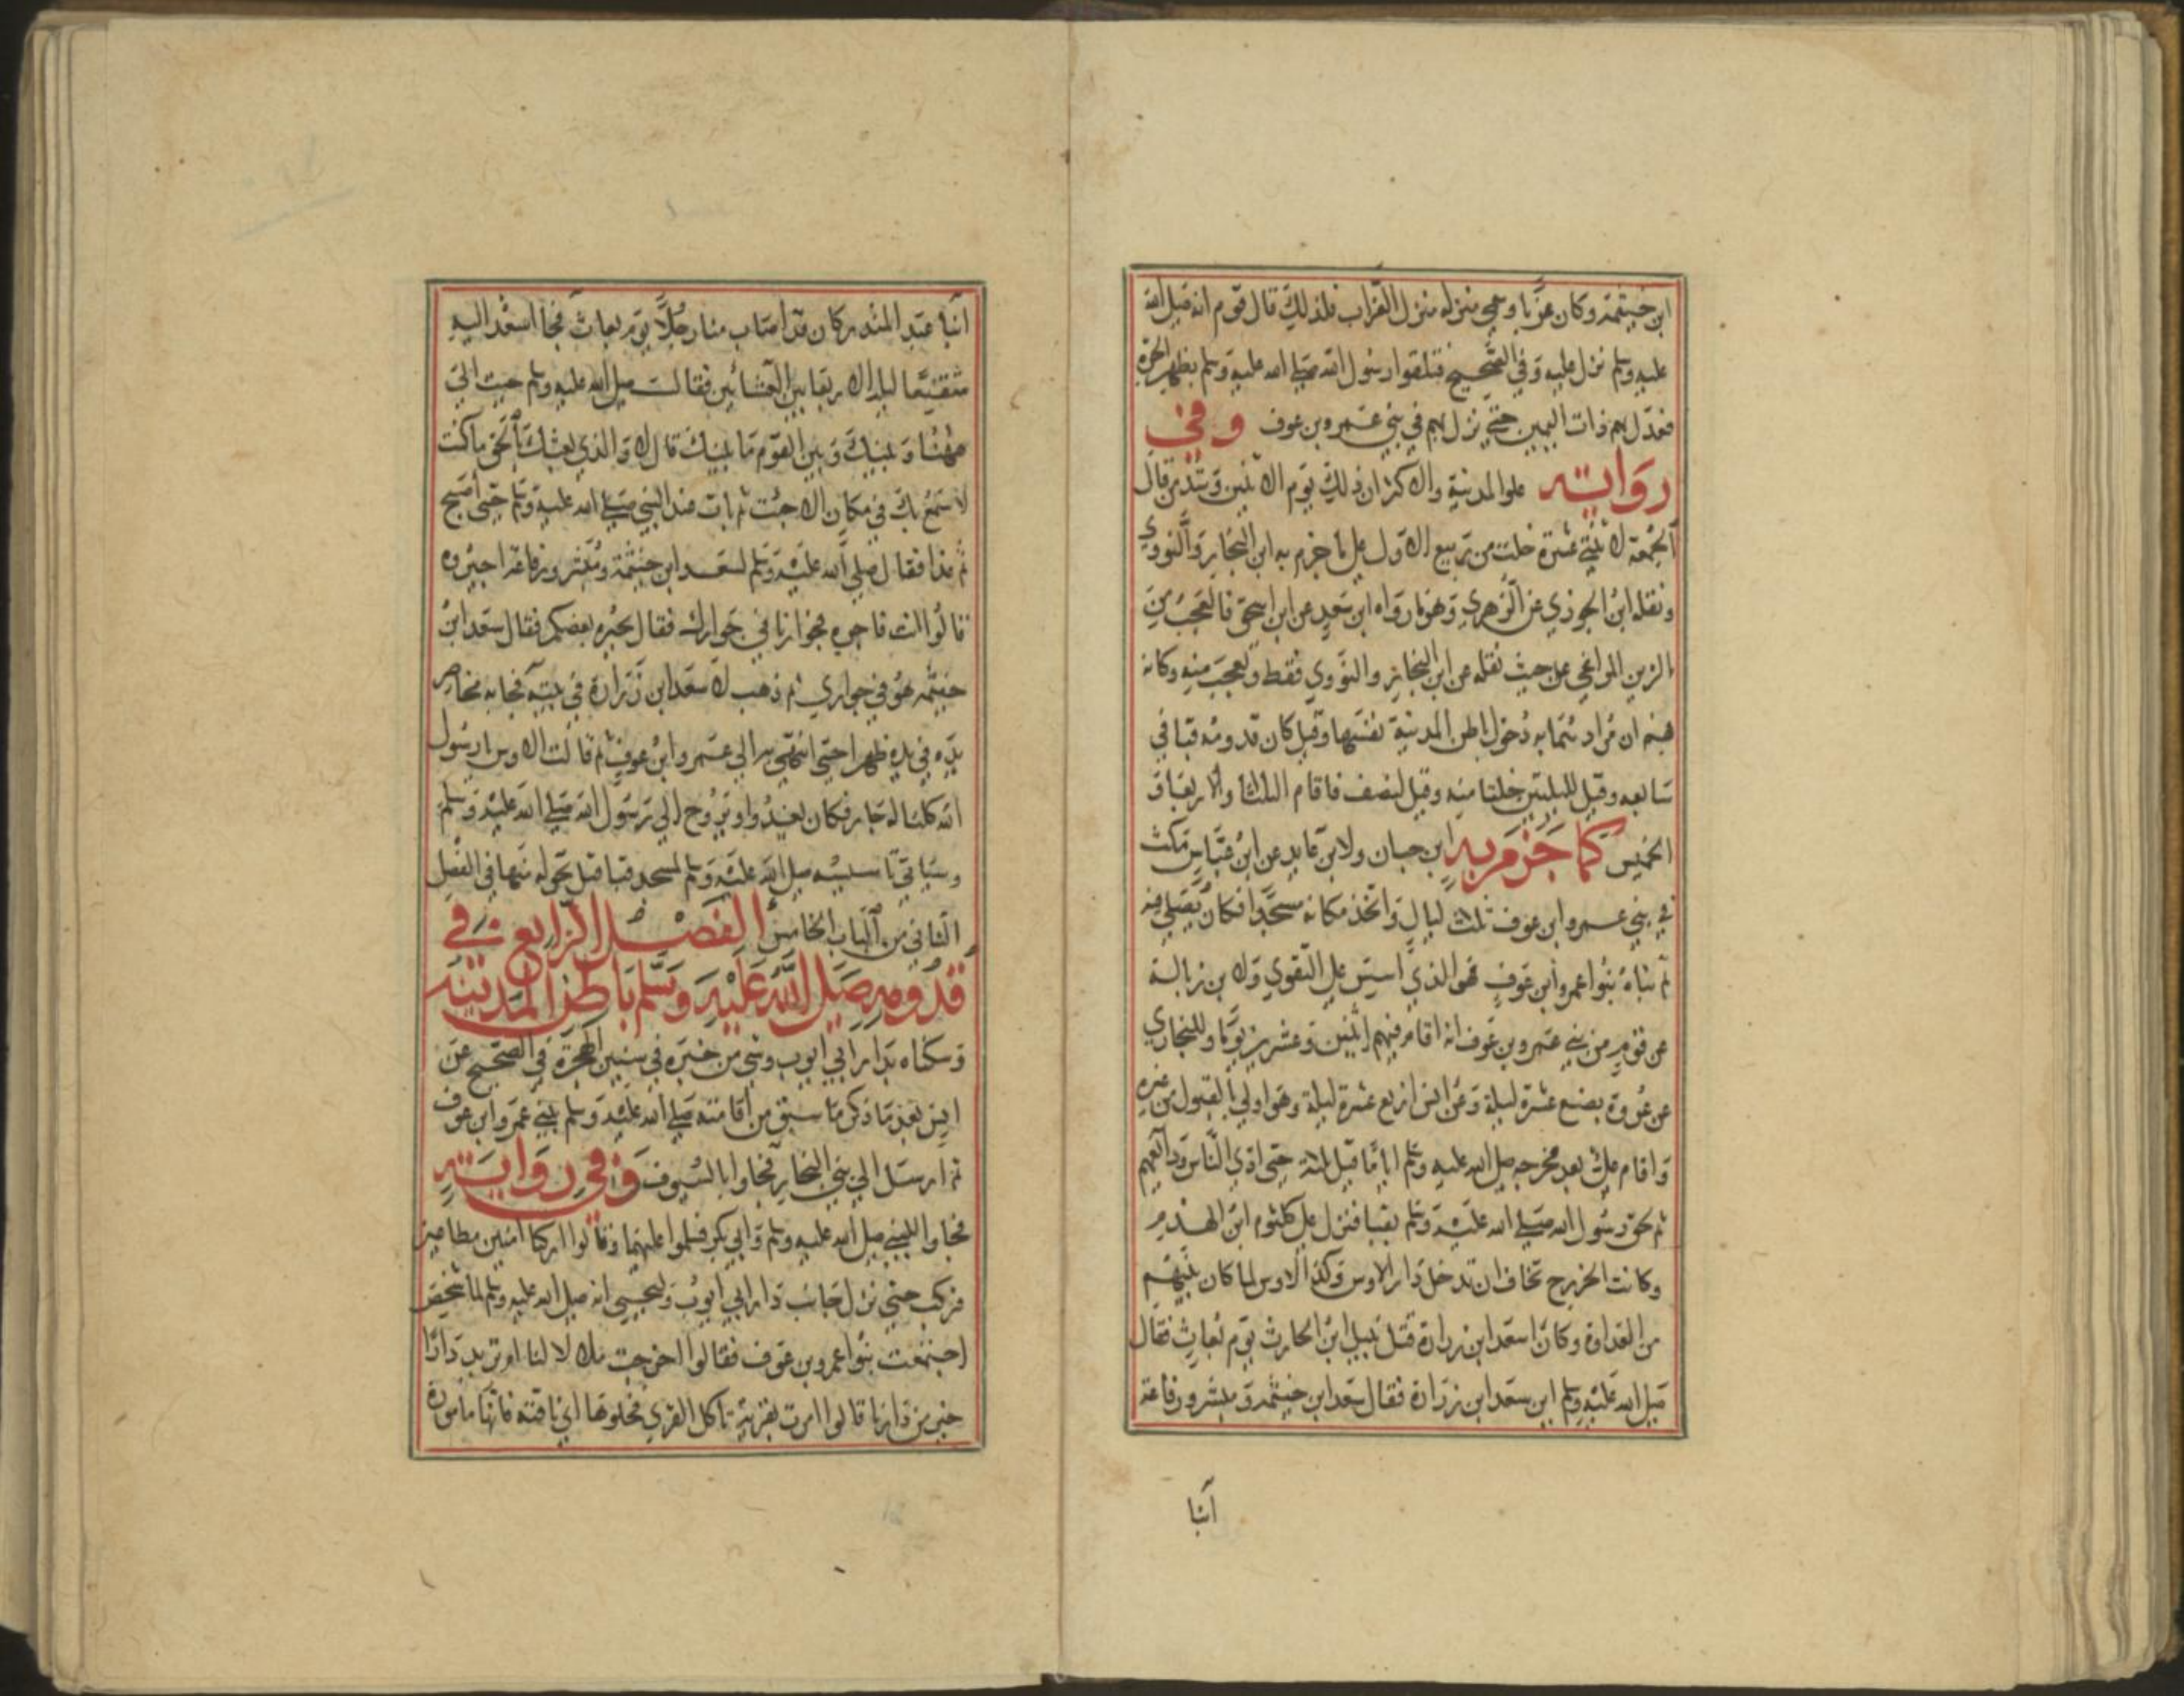 ابن خيثمة وكان عزبا وسمي منزله منزل العزاب فلذلك قال قوم انه صلى الله
عليه وسلم نزل عليه وفي الصحيح فتلقوا رسول الله صلى الله عليه وسلم بظهر الحرة
فعدل بهم ذات اليمين حتى نزل بهم في بني عمرو بن عوف وفي
رواية علو المدينة والاكثر ان ذلك يوم الاثنين قال
الجمعة لاثنتي عشرة خلت من ربيع الاول على ما جزم به ابن النجار والنووي
ونقله ابن الجوزي عن الزهري وهو ما رواه ابن سعد عن ابن اسحق فالعجب من
الزين المراغي حيث نقله عن ابن النجار والنووي فقط وتعجب منه وكانه
فهم ان مرادهما به دخول باطن المدينة نفسها وقيل كان قدومه قبا في
سابعه وقيل لليلتين خلتا منه وقيل لنصف فاقام الثلثا والاربعا و
الخميس كما جزم به ابن حبان ولابن عابد عن ابن عباس مكث
في بني عمرو ابن عوف ثلث ليال واتخذ مكانه مسجدا فكان يصلي فيه
ثم بناه بنوا عمرو ابن عوف فهو الذي اسس على التقوى ولابن زبالة
عن قوم من بني عمرو بن عوف انه اقام فيهم اثنين وعشرين يوما وللبخاري
عن عروة بضع عشرة ليلة وعن انس اربع عشرة ليلة وهو اولي بالقبول من غيره
واقام علي بعد مخرجه صلى الله عليه وسلم اياما قيل ثلثة حتى ادى الناس ودايعهم
ثم لحق رسول الله صلى الله عليه وسلم بقبا فنزل على كلثوم ابن الهدم
وكانت الخزرج تخاف ان تدخل دار الاوس وكذا الاوس لما كان بينهم
من العداوة وكان اسعد ابن زرارة قتل نبيل ابن الحارث يوم بعاث فقال
صلى الله عليه وسلم اين سعد ابن زرارة فقال سعد ابن خيثمة ومبشر ورفاعة
آبنا
آبنا عبد المنذر كان قد اصاب منا رجلا يوم بعاث فجا اسعد اليه
متقنعا ليلة الاربعا بين العشائين فقال صلى الله عليه وسلم جيت الي
ههنا وبينك وبين القوم ما بينك قال لا والذي بعثك بالحق ما كنت
لاسمع بك في مكان الا جئت ثم بات عند النبي صلى الله عليه وسلم حتى أصبح
ثم غدا فقال صلى الله عليه وسلم لسعد ابن خيثمة ومبشر ورفاعة اجيروه
قالوا انت فاجره فجوارنا في جوارك فقال يجيره بعضكم فقال سعد ابن
خيثمة هو في جواري ثم ذهب لاسعد ابن زرارة في بيته فجا به مخاصر
يده في يده ظهرا حتى انتهى به الي عمرو ابن عوف ثم قالت الاوس يا رسول
الله كلنا له جار فكان يغدوا ويروح الي رسول الله صلى الله عليه وسلم
وسياتي تاسيسه صلى الله عليه وسلم لمسجد قبا قبل تحوله منها في الفصل
الثاني من الباب الخامس الفصل الرابع في
قدومه صلى الله عليه وسلم باطن المدينة
وسكناه بدار ابي ايوب وشي من خبره في سنين الهجرة في الصحيح عن
انس بعد ما ذكر ما سبق من اقامته صلى الله عليه وسلم ببني عمرو ابن عوف
ثم ارسل الي بني النجار فجاوا بالسيوف وفي رواية
فجاوا للنبي صلى الله عليه وسلم وابي بكر فسلموا عليهما وقالوا اركبا امنين مطاعين
فركب حتى نزل جانب دار ابي ايوب وليحيى انه صلى الله عليه وسلم لما شخص
اجتمعت بنوا عمرو بن عوف فقالوا اخرجت ملالا لنا او تريد دارا
خير من دارنا قالوا امرت بقرية تاكل القرى فخلوها اي ناقته فانها مامورة